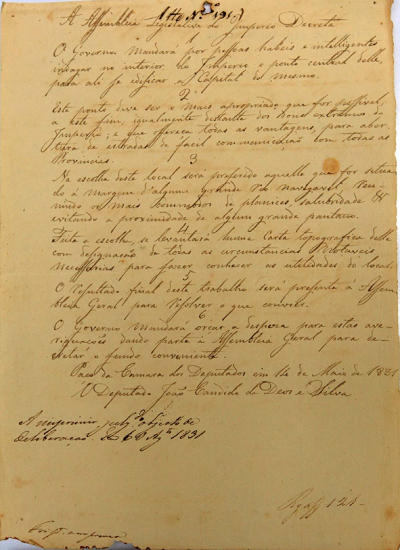 A Assemblea Legislativa do Imperio Decreta
O Governo Mandará por pessoas habeis e intelligentes
indagar no interior do Imperio o ponto central delle,
para ali se edificar a Capital do mesmo.
2
Este ponto deve ser o mais apropriado que for possivel,
a este fim, igualmente distante dos extremos do
Imperio; e que offereça todas as vantagens, para abertura
de estradas de facil communicação com todas as
Provincias.
3
Na escolha deste local será preferido aquelle que for situado
á margem d'algum grande Rio navegavel, reunindo
o mais de planicies, salubridade &
evitando a proximidade de algum grande pantano.
4
Feita a escolha, se levantará huma Carta topografica delle
com designação de todas as circunstancias
necessarias para fazer conhecer as utilidades do local.
5
O resultado final deste trabalho será presente á Assemblea
Geral para resolver o que convier.
6
O Governo Mandará orçar a despeza para estas averiguações
dando parte á Assemblea Geral para decretar
o fundo conveniente.
Paço da Camara dos Deputados em 14 de Maio de 1831
O Deputado João Candido de Deos e Silva
A imprimir julgado objecto de
deliberação 6 de 1831